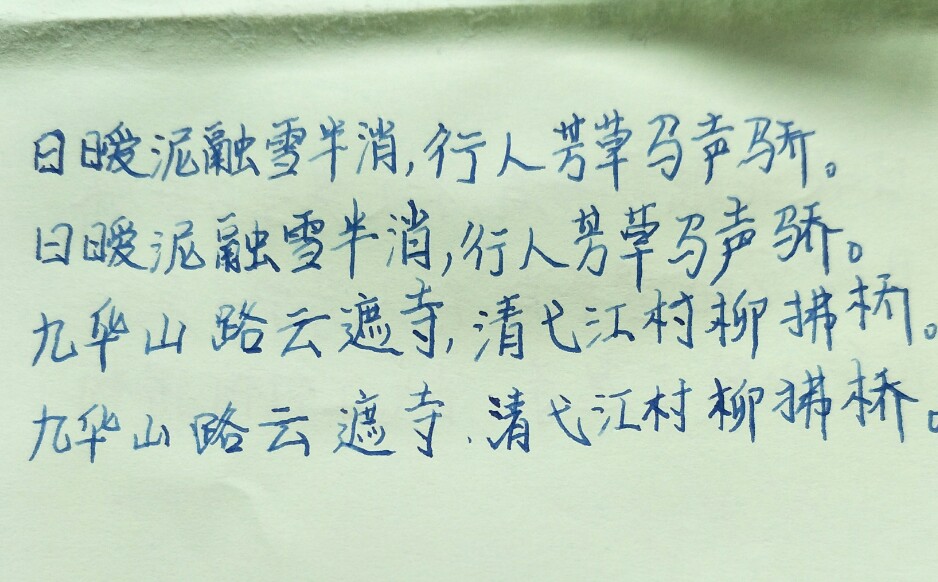 日暖泥融雪半消,行人芳草马声骄。
日暖泥融雪半消,行人芳草马声骄。
九华山路云遮寺,清弋江村柳拂桥。
九华山路云遮寺,清弋江村柳拂桥。